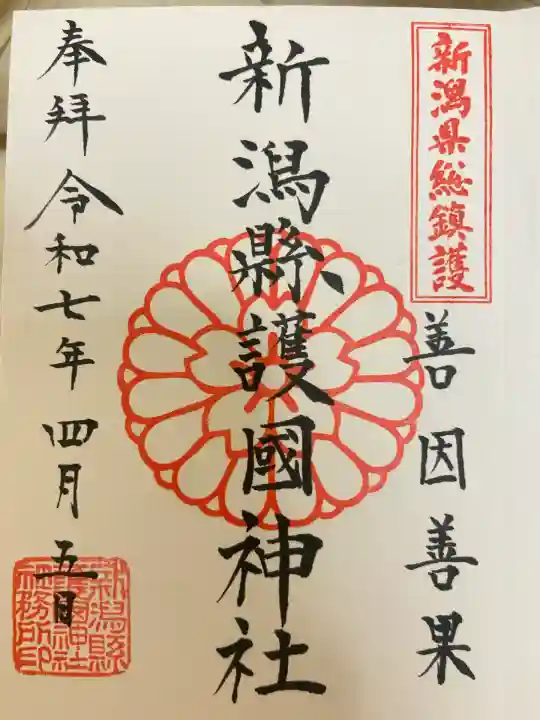 新潟県総鎮護
善因善果
新潟縣護國神社
奉拜令和七年四月五日
新潟縣
護國神社
社務所印